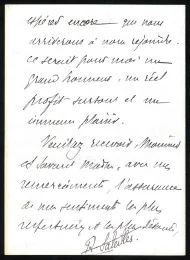 espérer encore que nous
arriverons à nous rejoindre.
Ce serait pour moi un
grand honneur, un réel
profit surtout et un
immense plaisir.
Veuillez recevoir, Monsieur
et savant maître, avec mes
remerciements, l'assurance
de mes sentiments les plus
respectueux et les plus dévoués.
R. Saleilles.